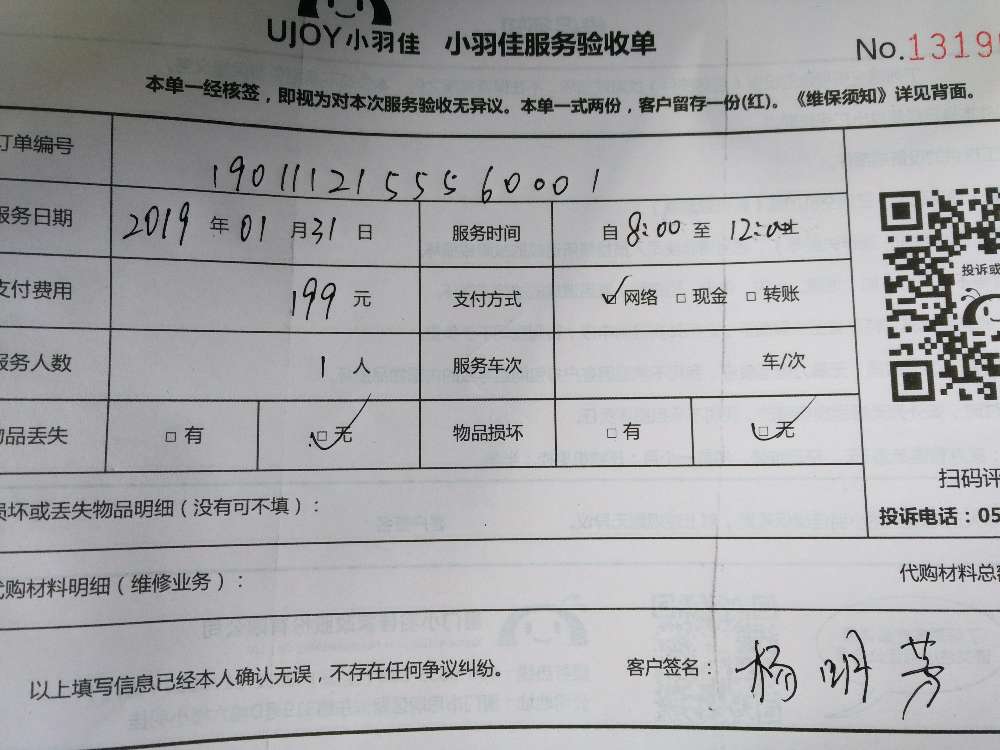 UJOY小羽佳 小羽佳服务验收单 No.1319
本单一经核签，即视为对本次服务验收无异议。本单一式两份，客户留存一份(红)。《维保须知》详见背面。
订单编号 1901112155560001
服务日期 2019 年 01 月 31 日 服务时间 自 8:00 至 12:00 止
支付费用 199 元 支付方式 ☑网络 □现金 □转账
服务人数 1 人 服务车次 车/次
物品丢失 □有 ☑无 物品损坏 □有 ☑无
投诉或
扫码评
投诉电话：05
损坏或丢失物品明细（没有可不填）：
代购材料明细（维修业务）： 代购材料总额
以上填写信息已经本人确认无误，不存在任何争议纠纷。 客户签名： 杨明芳